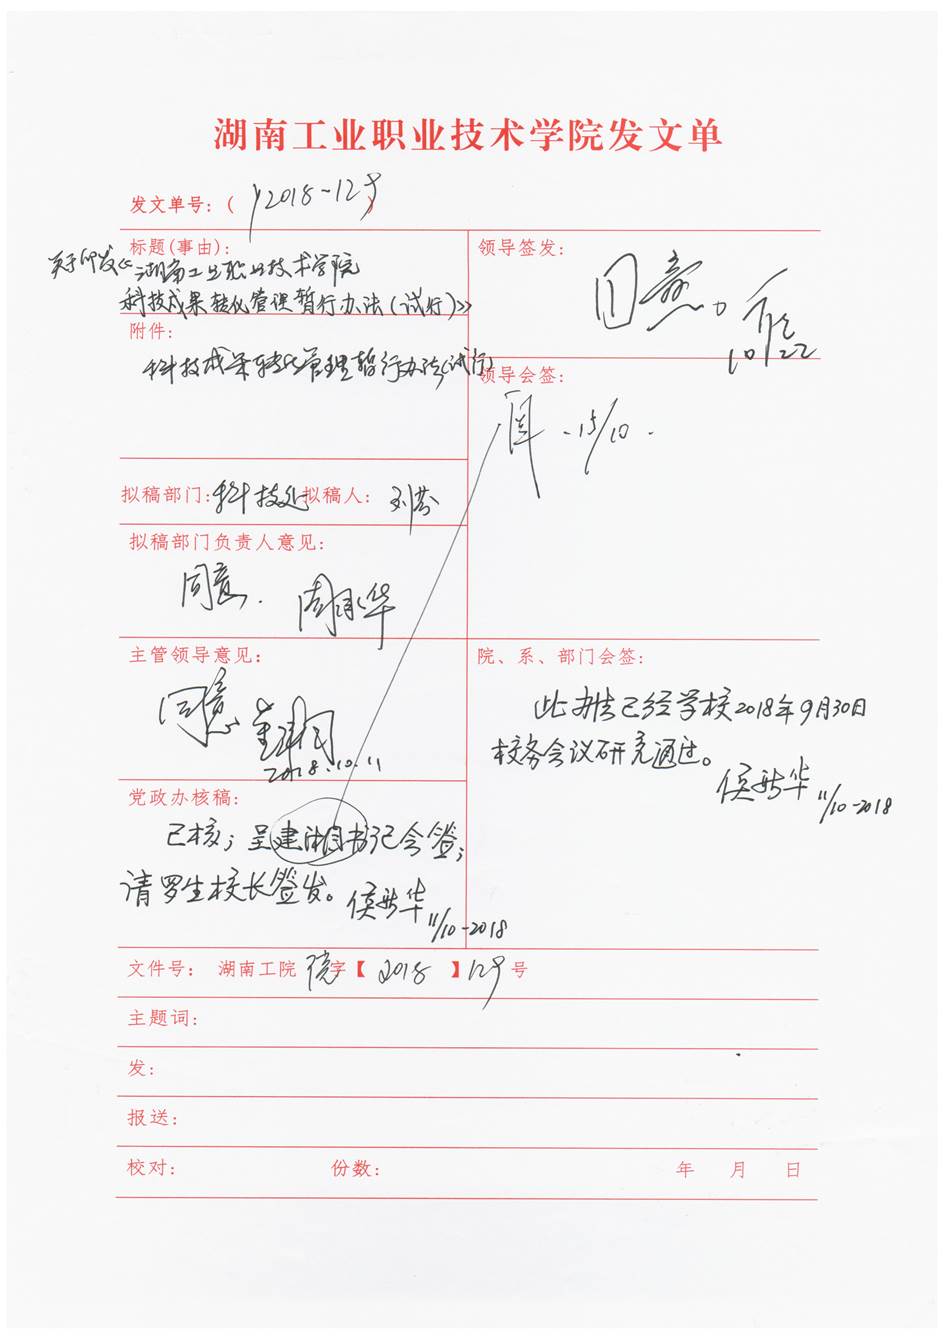 湖南工业职业技术学院发文单
发文单号：（2018-129）
标题(事由)：
关于印发《湖南工业职业技术学院
科技成果转化管理暂行办法（试行）》
领导签发：
同意。
10/22
附件：
科技成果转化管理暂行办法(试行)
领导会签：
15/10.
拟稿部门：科技处 拟稿人：
拟稿部门负责人意见：
同意.
主管领导意见：
同意
2018.10.11
院、系、部门会签：
此办法已经学校2018年9月30日
校务会议研究通过。
11/10-2018
党政办核稿：
已核；呈建湘书记会签；
请罗生校长签发。
11/10-2018
文件号： 湖南工院 院字【2018】129号
主题词：
发：
报送：
校对： 份数： 年 月 日